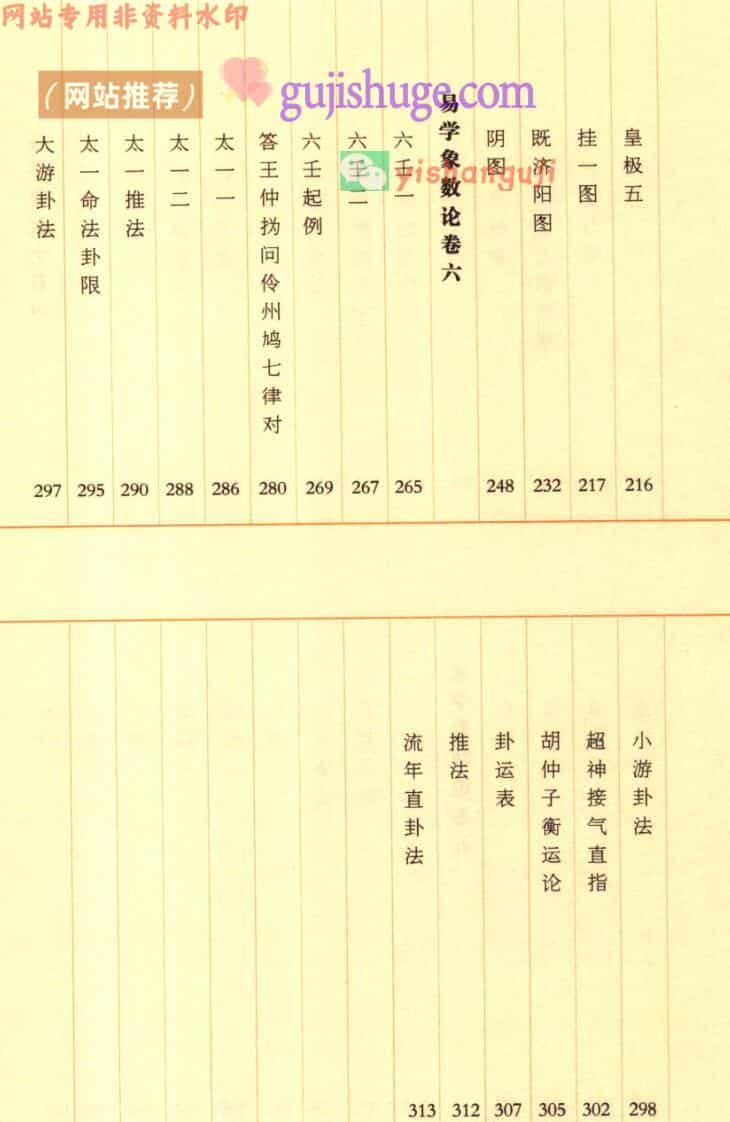 网站专用非资料水印
（网站推荐）
gujishuge.com
yishanguji
皇极五 216
挂一图 217
既济阳图 232
阴图 248
易学象数论卷六
六壬一 265
六壬二 267
六壬起例 269
答王仲㧑问伶州鸠七律对 280
太一一 286
太一二 288
太一推法 290
太一命法卦限 295
大游卦法 297
小游卦法 298
超神接气直指 302
胡仲子衡运论 305
卦运表 307
推法 312
流年直卦法 313